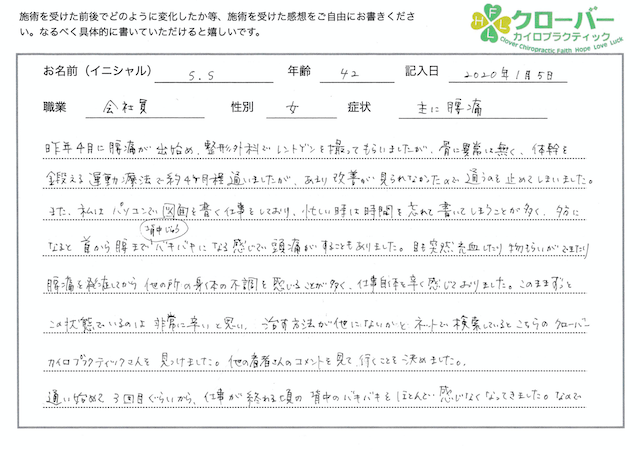 施術を受けた前後でどのように変化したか等、施術を受けた感想をご自由にお書きくださ
い。なるべく具体的に書いていただけると嬉しいです。
HFLL
クローバー
カイロプラクティック
Clover Chiropractic Faith Hope Love Luck
お名前（イニシャル） S.S 年齢 42 記入日 2020年1月5日
職業 会社員 性別 女 症状 主に腰痛
昨年4月に腰痛が出始め、整形外科でレントゲンを撮ってもらいましたが、骨に異常は無く、体幹を
鍛える運動療法で約4ヶ月程通いましたが、あまり改善が見られなかったので通うのを止めてしまいました。
また、私はパソコンで図面を書く仕事をしており、忙しい時は時間を忘れて書いてしまうことが多く、夕方に
背中じゅう
なると首から腰までバキバキになる感じで頭痛がすることもありました。目も突然充血したり物もらいができたり
腰痛を発症してから他の所の身体の不調を感じることが多く、仕事自体を辛く感じておりました。このままずっと
この状態でいるのは非常に辛いと思い、治す方法が他にないかとネットで検索しているとこちらのクローバー
カイロプラクティックさんを見つけました。他の患者さんのコメントを見て、行くことを決めました。
通い始めて3回目ぐらいから、仕事が終わる頃の背中のバキバキをほとんど感じなくなってきました。なので